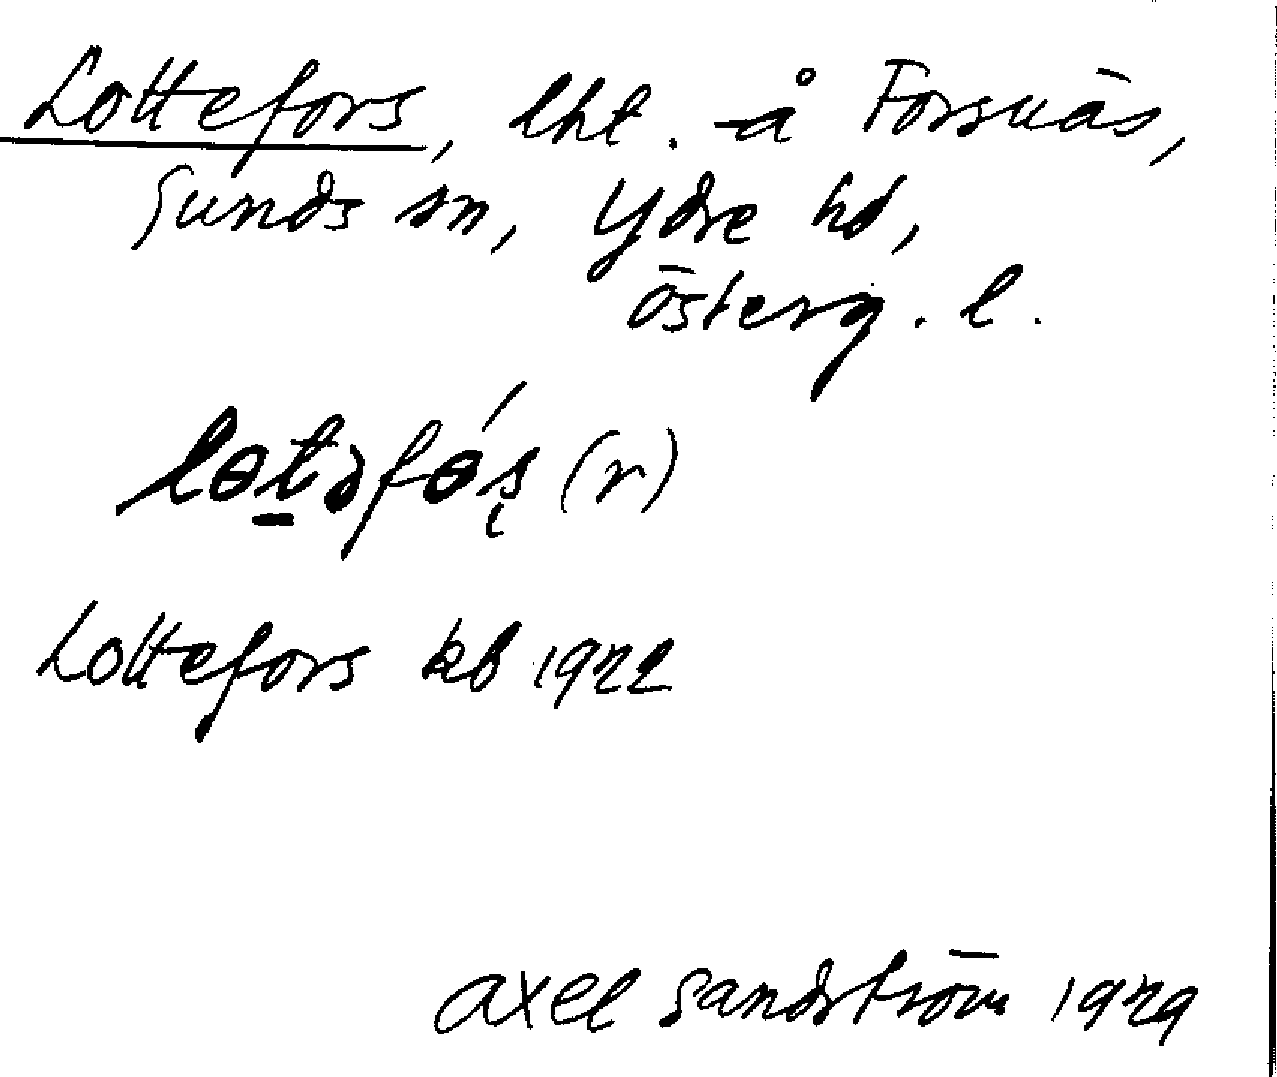 Lottefors, lht. å Forsnäs,
Sunds sn, Ydre hd,
Österg. l.
lɵt̲əfɵ́ʂ (r)
Lottefors kb 1922
Axel Sandström 1929